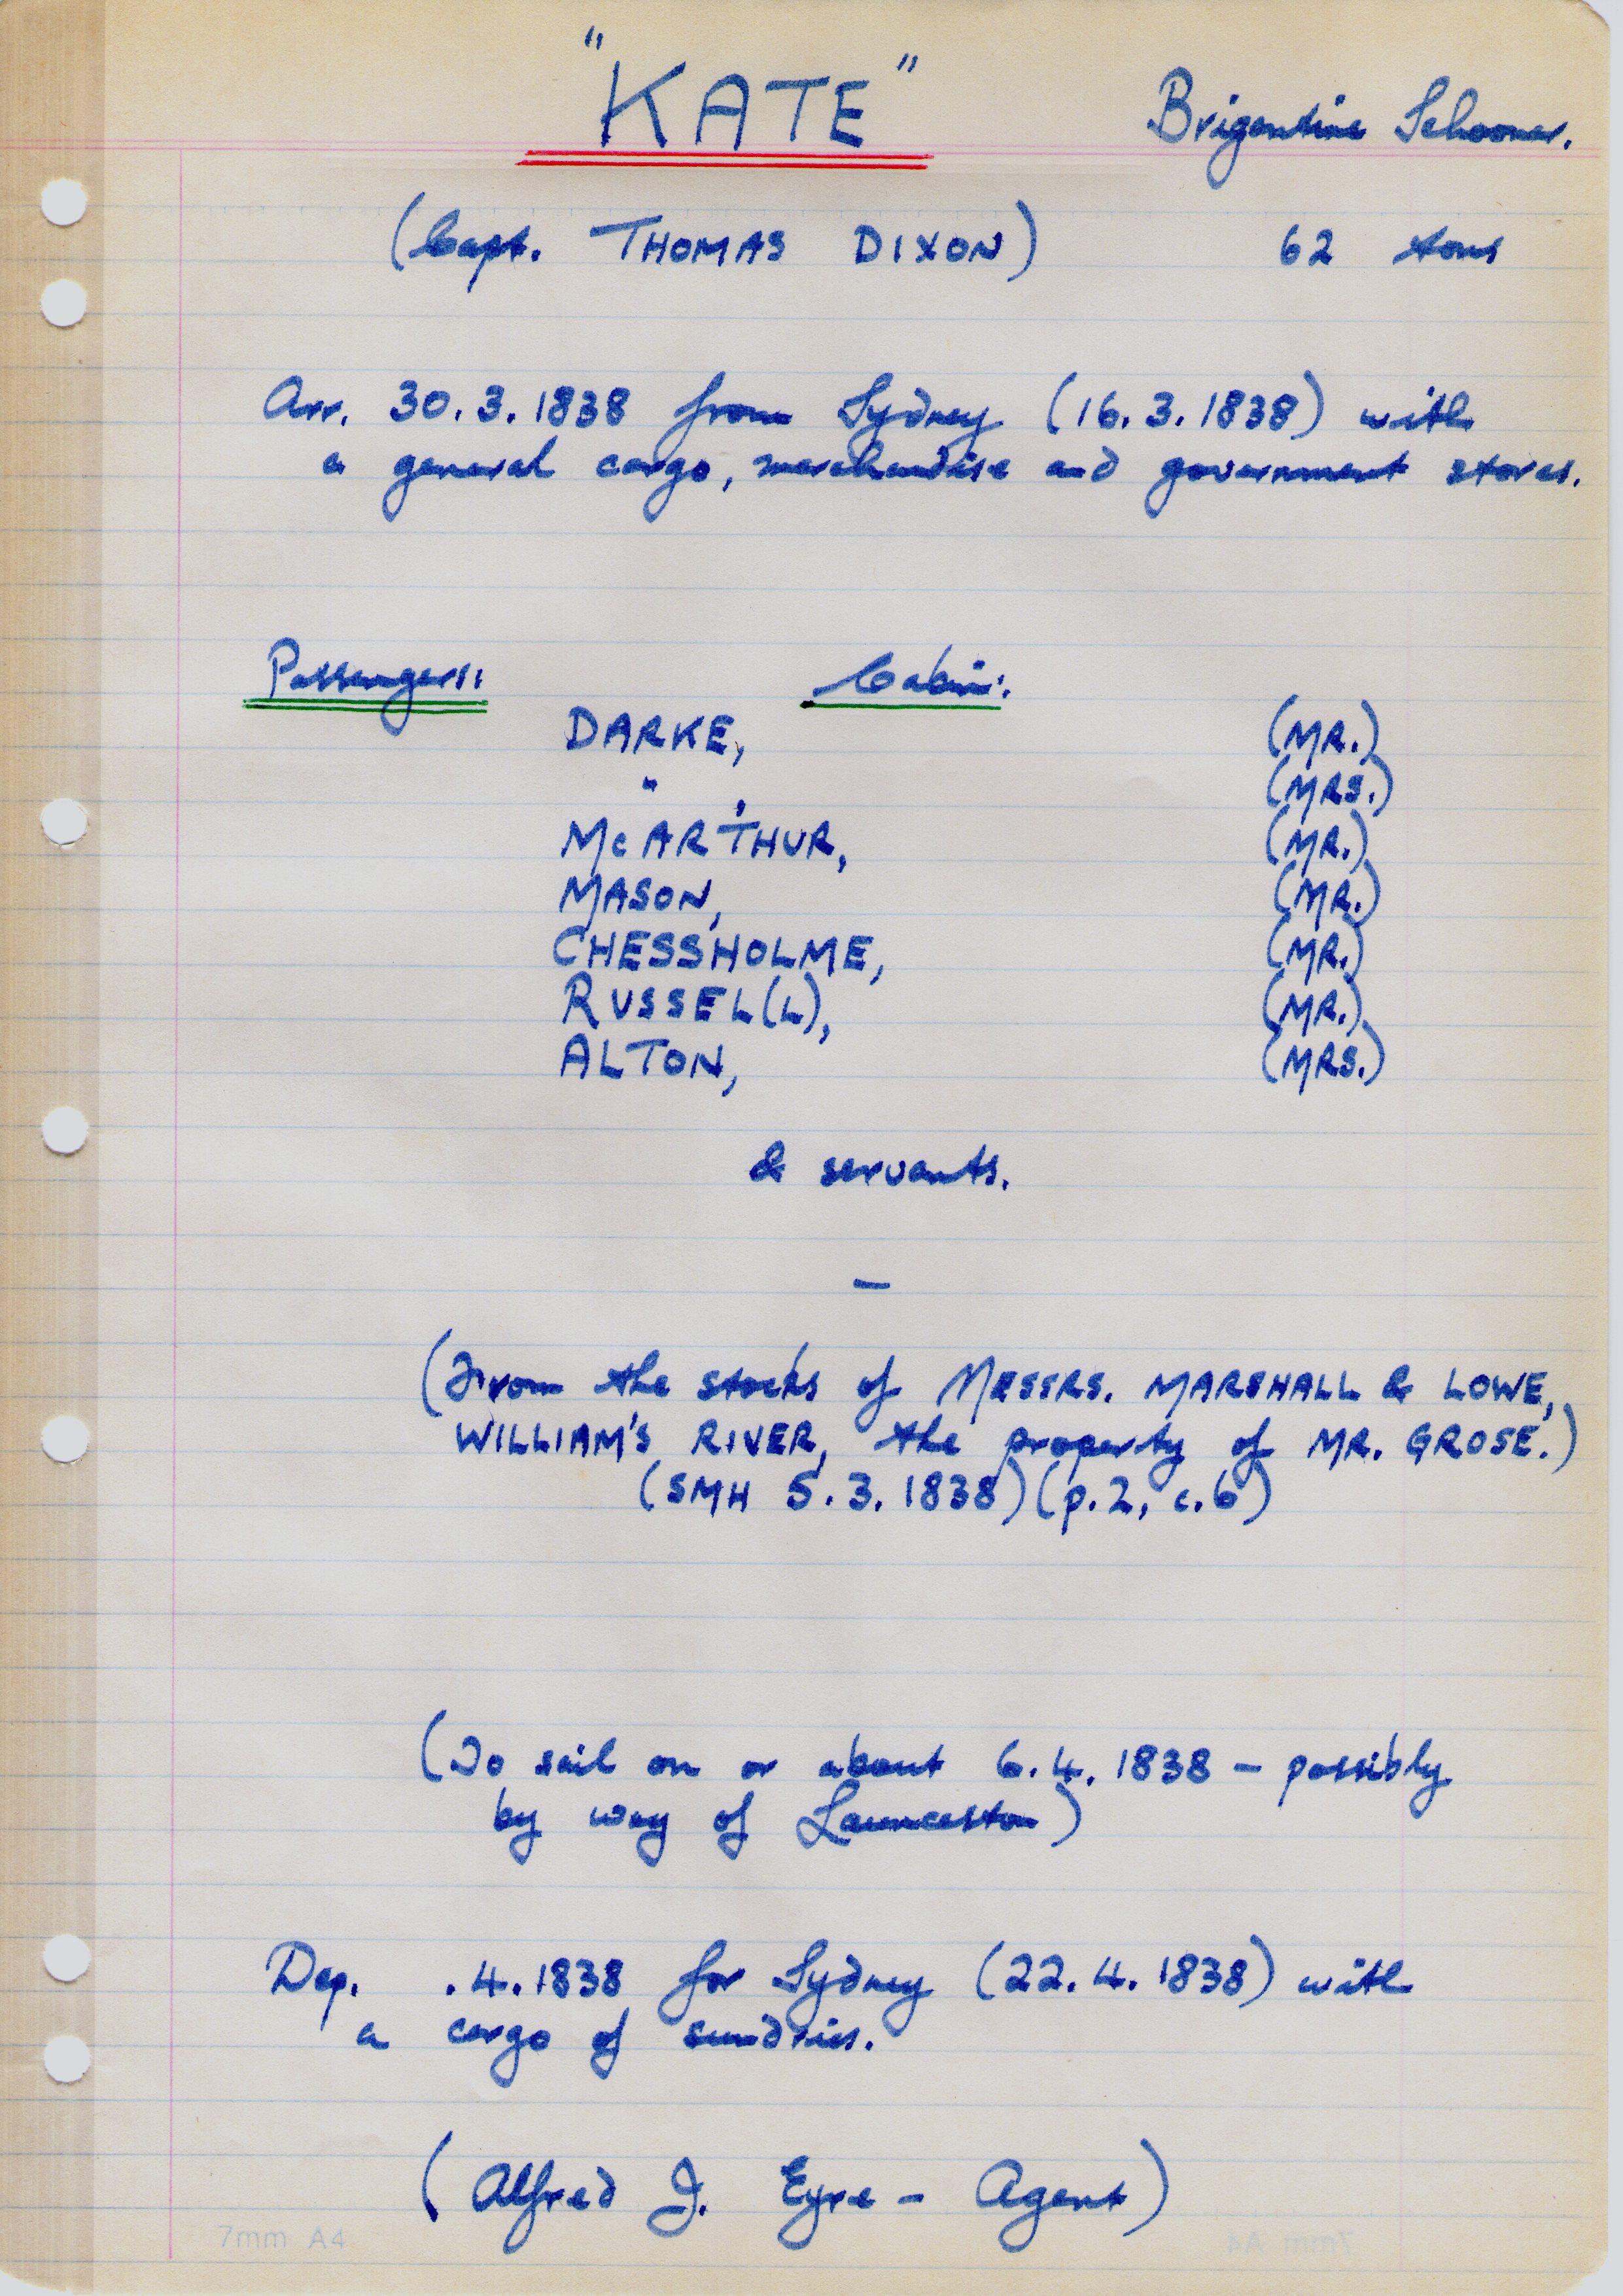 "KATE" Brigantine Schooner.
(Capt. THOMAS DIXON) 62 tons
Arr. 30.3.1838 from Sydney (16.3.1838) with
a general cargo, merchandise and government stores.
Passengers: Cabin:
DARKE, (MR.)
" , (MRS.)
McARTHUR, (MR.)
MASON, (MR.)
CHESSHOLME, (MR.)
RUSSEL(L), (MR.)
ALTON, (MRS.)
& servants.
—
(From the stocks of MESSRS. MARSHALL & LOWE,
WILLIAM'S RIVER, the property of MR. GROSE.)
(SMH 5.3.1838)(p.2, c.6)
(To sail on or about 6.4.1838 – possibly
by way of Launceston)
Dep. .4.1838 for Sydney (22.4.1838) with
a cargo of sundries.
(Alfred J. Eyre – Agent)
7mm A4
7mm A4